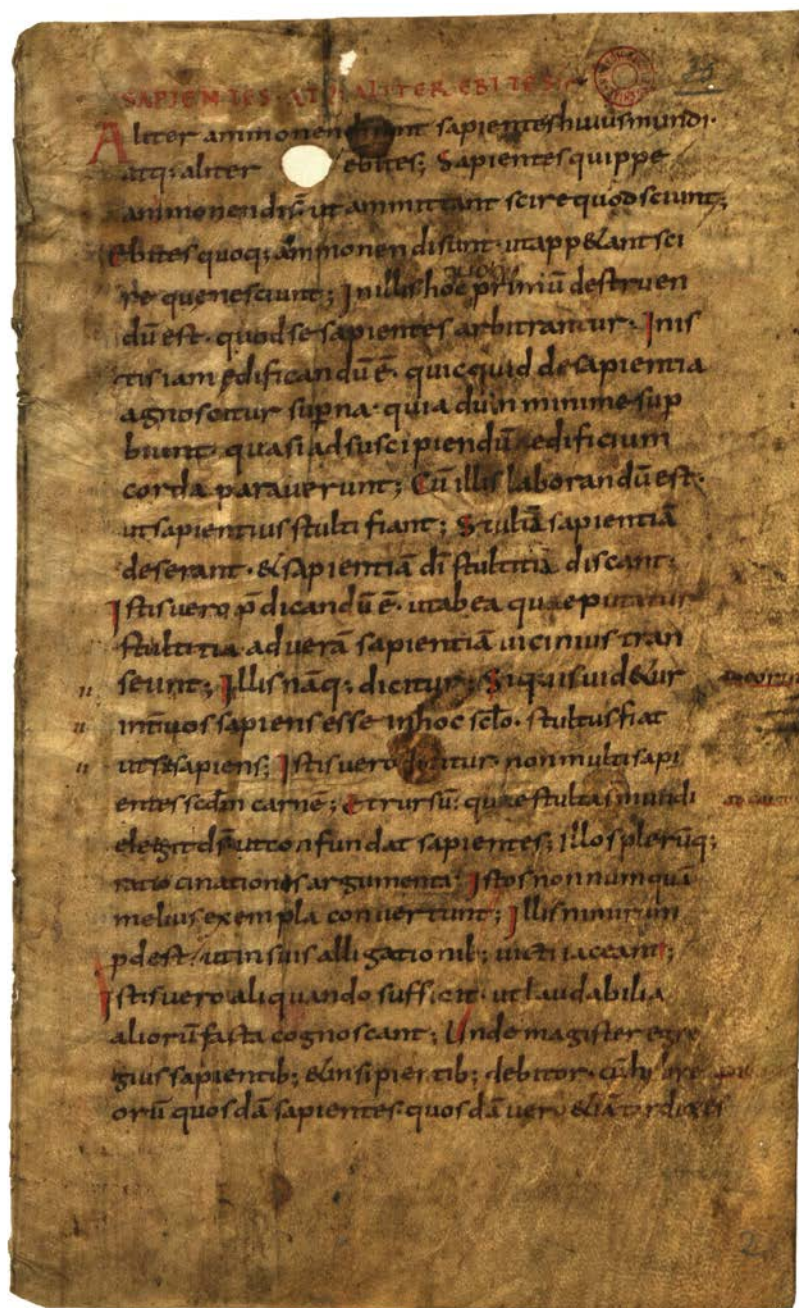 SAPIENTES · ATQ ALITER EBITES
Aliter ammonendi sunt sapientes huius mundi·
atq; aliter ebites; Sapientes quippe
ammonendi sī ut ammittant scire quod sciunt;
Ebites quoq; ammonendi sunt· ut appetant sci
re que nesciunt; In illis hoc primū destruen
dū est· quod se sapientes arbitrantur· In is
tis iam edificandū ē· quicquid de sapientia
agnoscitur suꝑna· quia dum minime suꝑ
biunt· quasi ad suscipiendū edificium
corda paraverunt; Cū illis laborandū est·
ut sapientius stulti fiant; Stultā sapientiā
deserant· & sapientiā dī stultitiā discant·
Istis vero p̄dicandū ē· ut ab ea quae putatur
stultitia· ad verā sapientiā vicinius tran
seunt; Illis nāq; dicitur; Siquis videtur
int̄ vos sapiens esse in hoc sc̄lo· stultus fiat
ut se sapiens; Istis vero dicitur· non multi sapi
entes scd̄m carnē; Et rursū· quae stulta s̄ mundi
elegit d̄s ut confundat sapientes; Illos plerūq;
ratiocinationes argumenta; Istos non numquā
melius exempla convertunt; Illis nimirum
ꝓdest· ut in suis alligationib; victi iaceant;
Istis vero aliquando sufficit· ut laudabilia
aliorū facta cognoscant; Unde magister egre
gius sapientib; & insipientib; debitor· cū hebre
orū quosdā sapientes· quosdā vero &iā tardiores
2